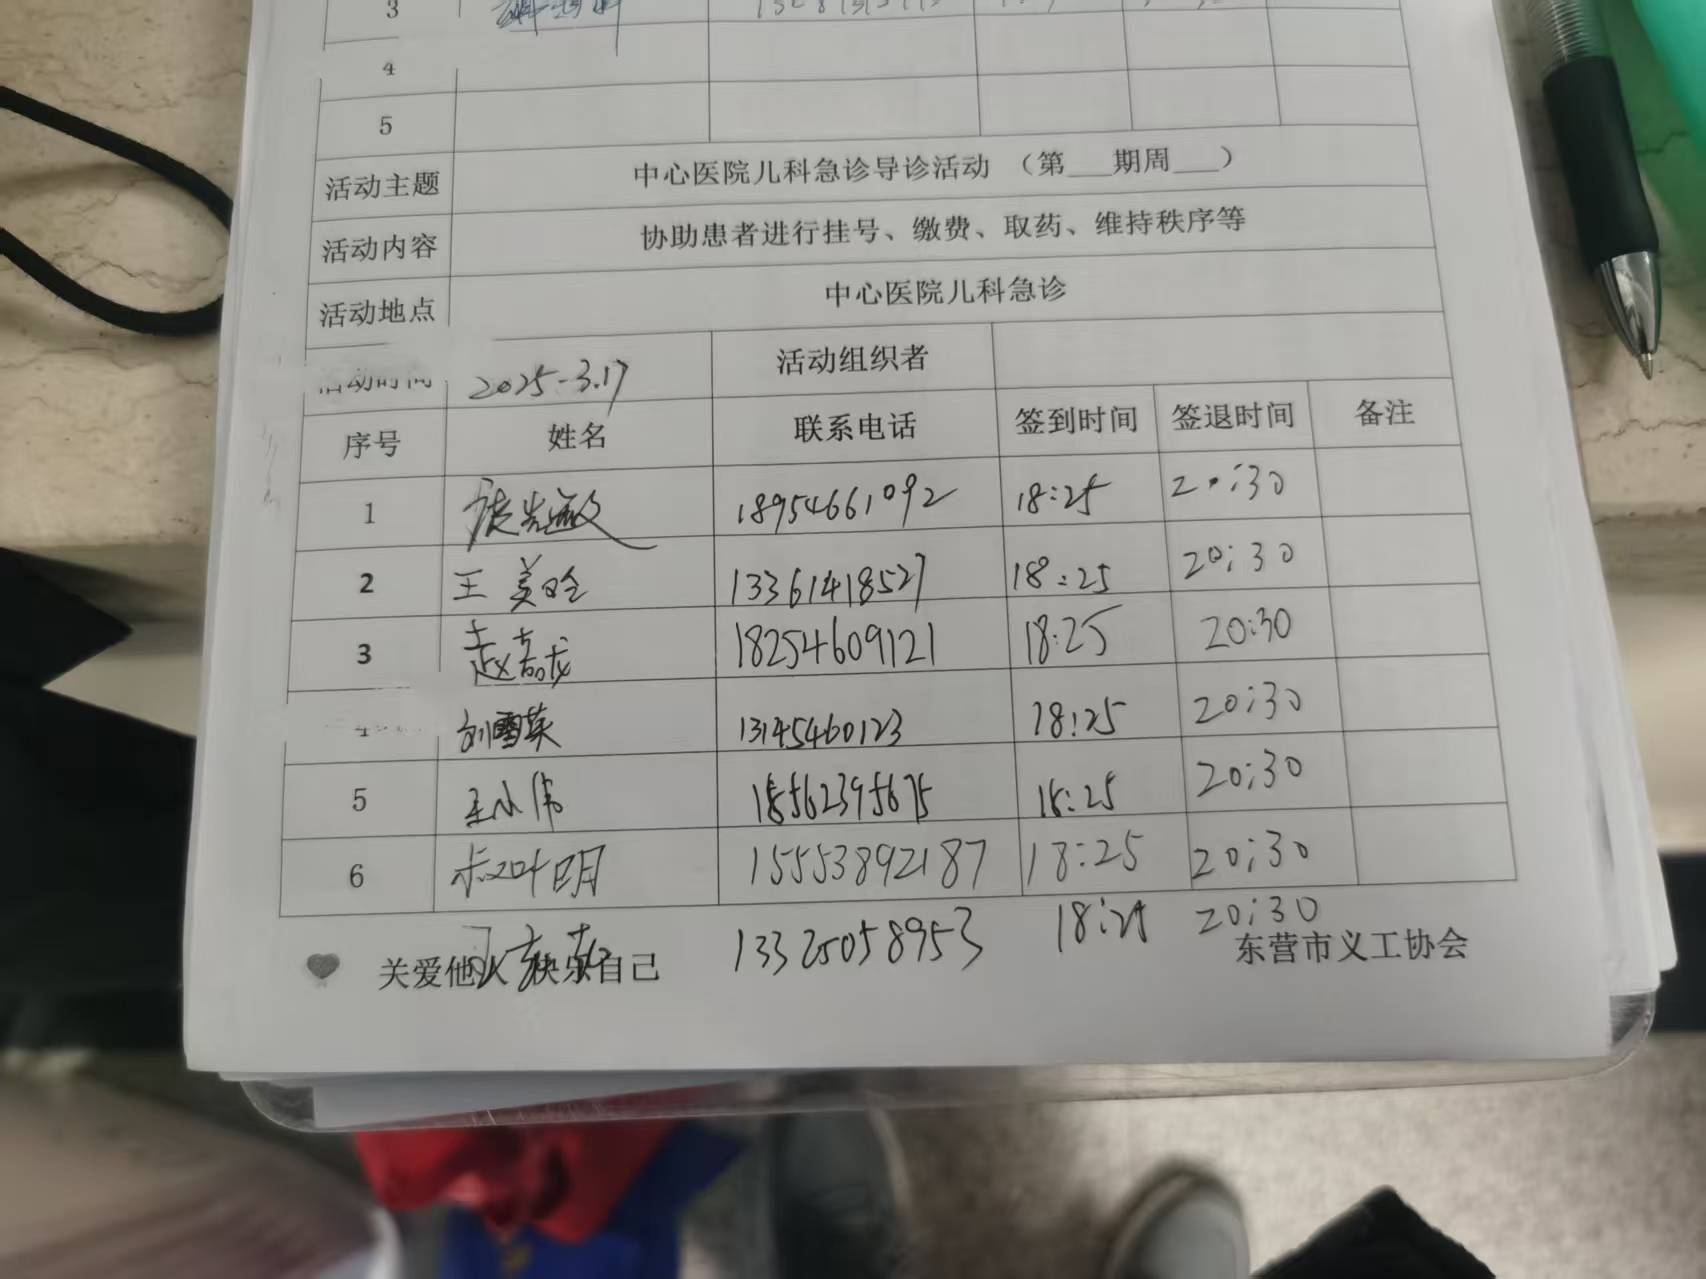 3
4
5
活动主题 中心医院儿科急诊导诊活动 （第___期周___）
活动内容 协助患者进行挂号、缴费、取药、维持秩序等
活动地点 中心医院儿科急诊
活动时间 2025-3.17 活动组织者
序号 姓名 联系电话 签到时间 签退时间 备注
1 18954661092 18:25 20:30
2 王美玲 13361418527 18:25 20:30
3 赵嘉龙 18254609121 18:25 20:30
4 刘雪英 13145460123 18:25 20:30
5 王小伟 18562395675 18:25 20:30
6 15553892187 18:25 20:30
13325058953 18:25 20:30
关爱他人 快乐自己 东营市义工协会